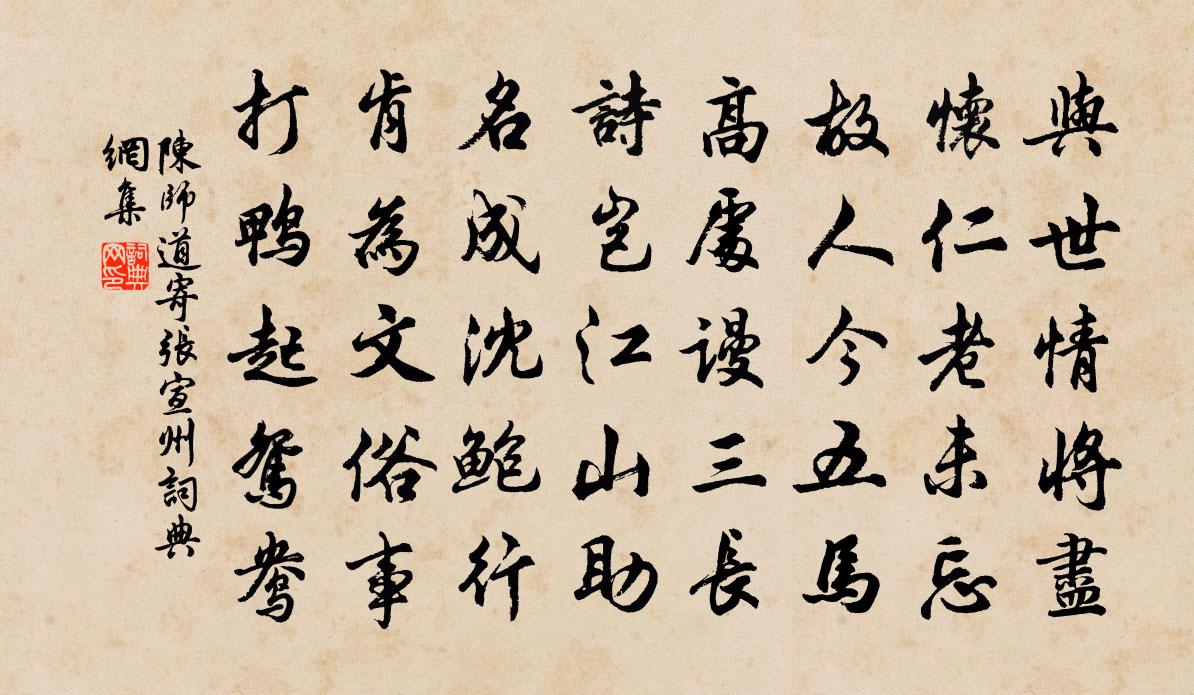 與世情將盡
懷仁老未忘
故人今五馬
高處謾三長
詩豈江山助
名成沈鮑行
肯為文俗事
打鴨起鴛鴦
陳師道寄張宣州詞典
網集
詞典
网印